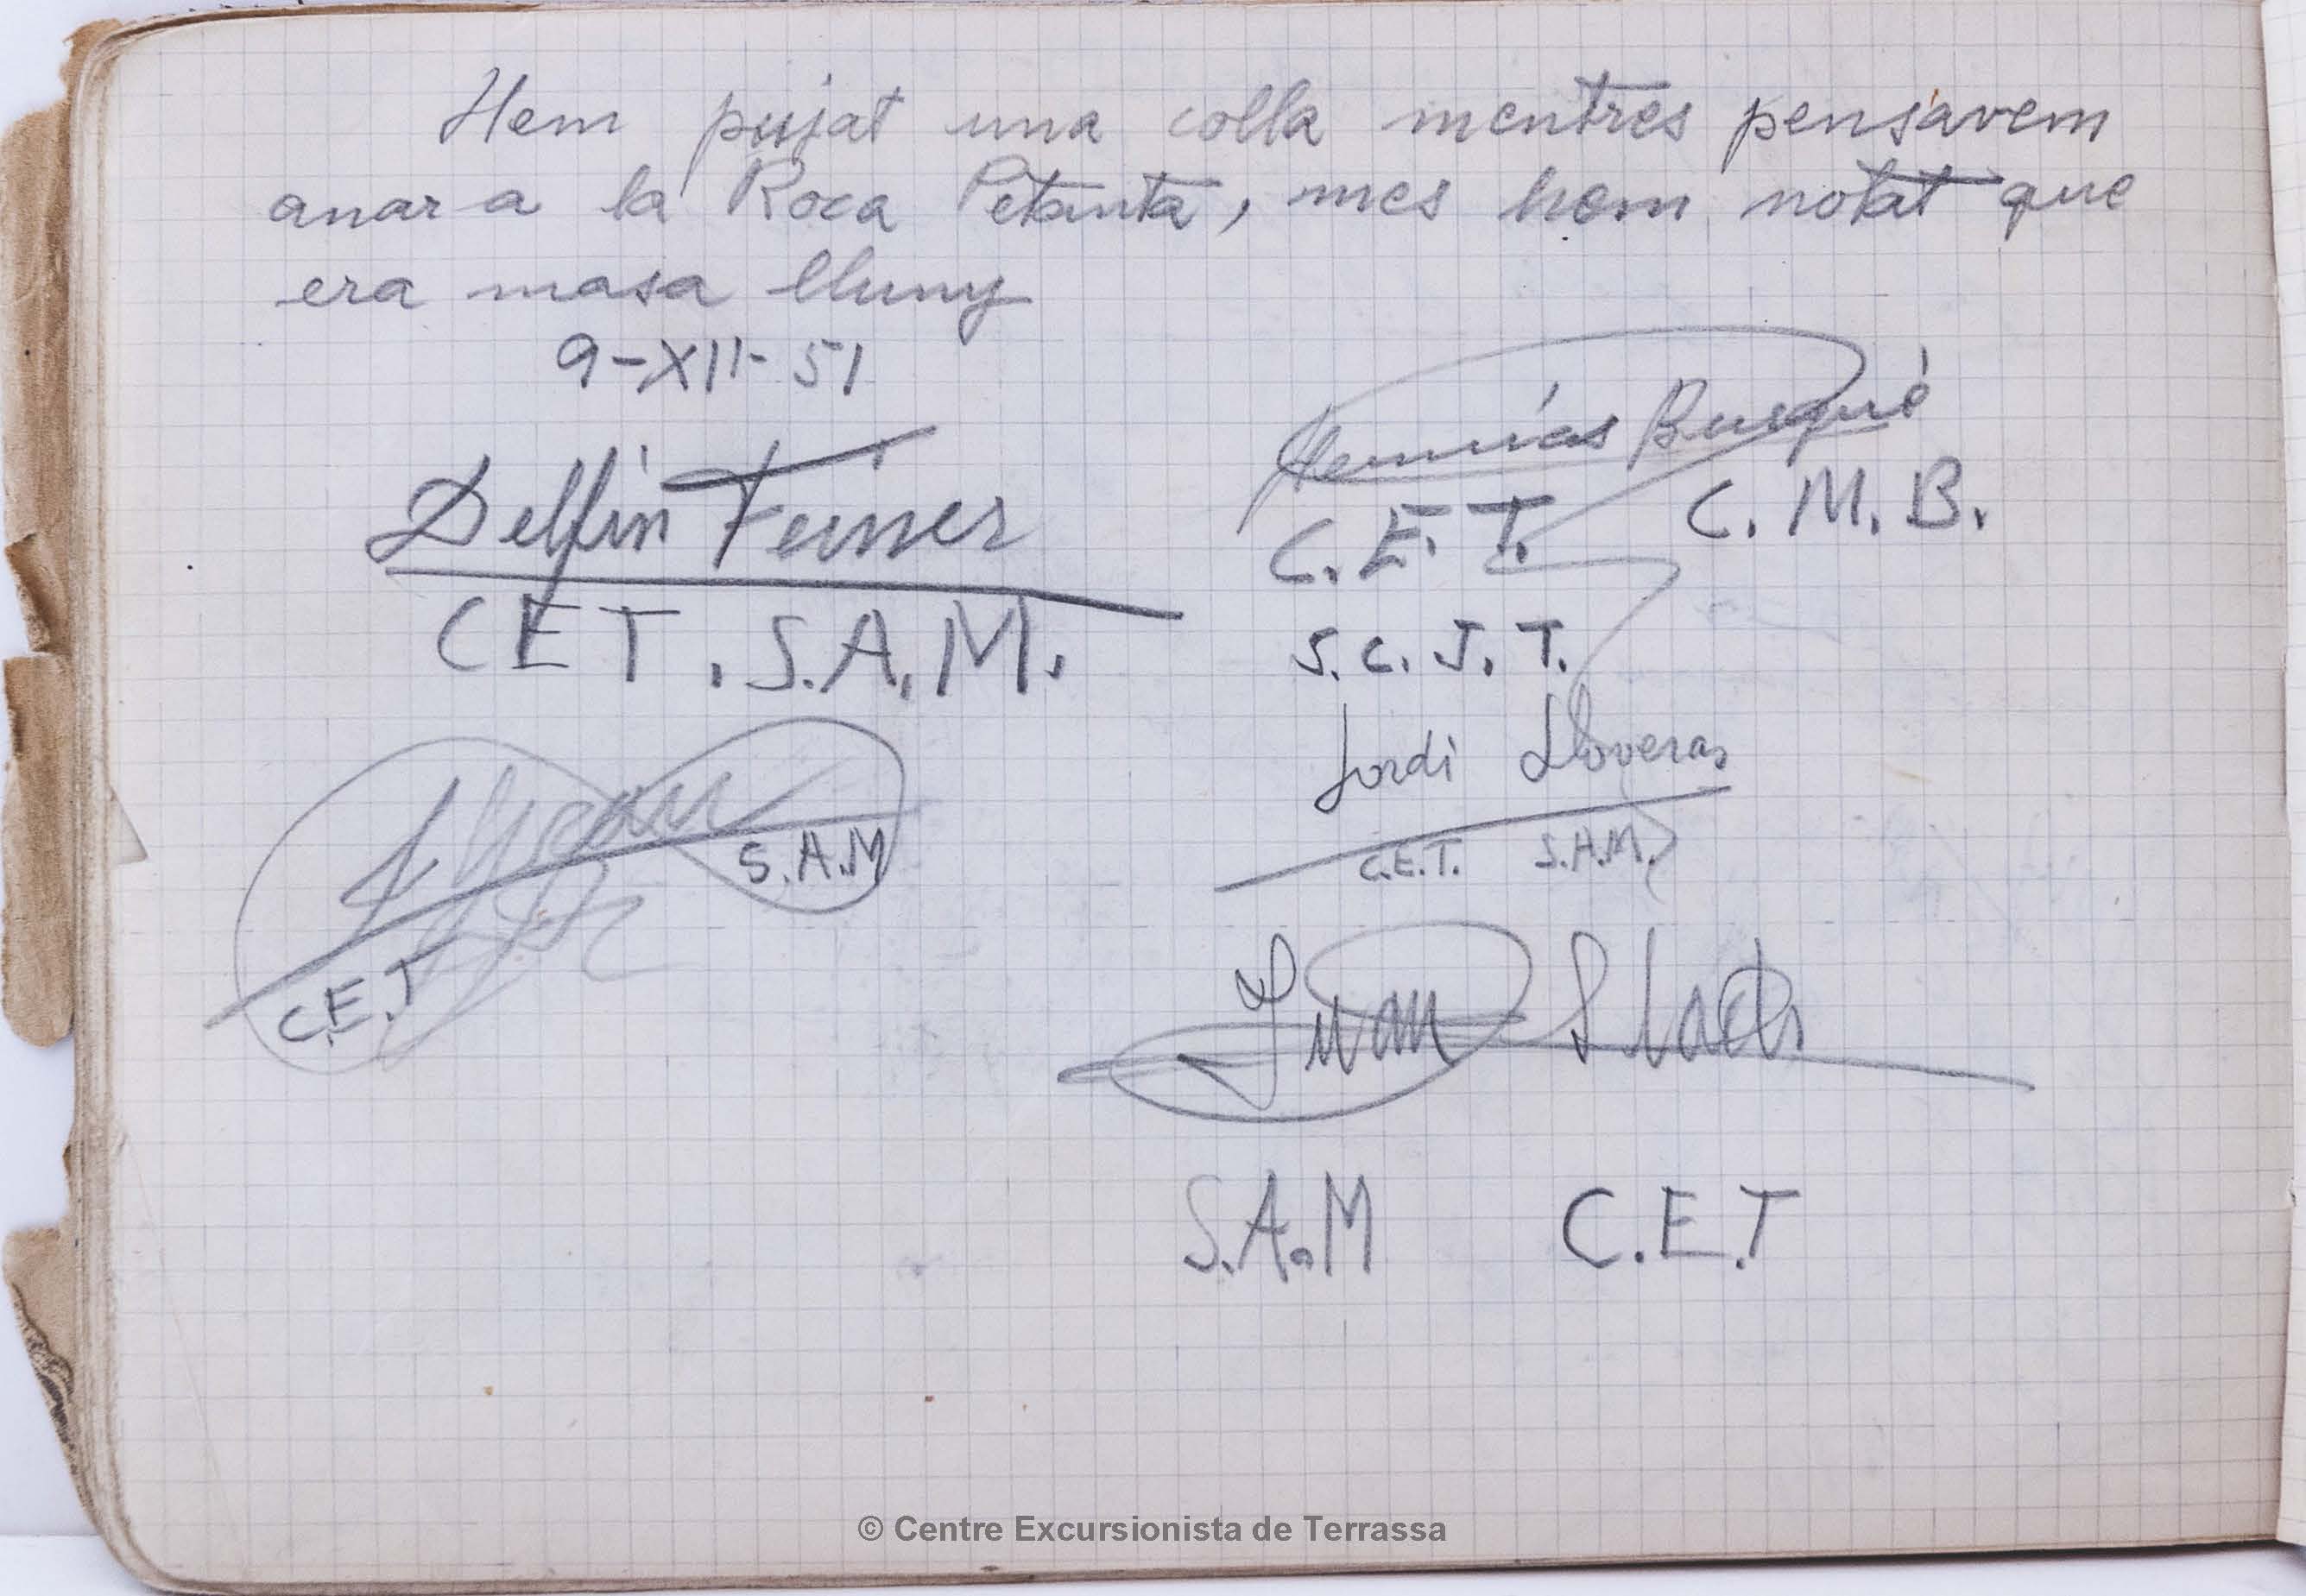 Hem pujat una colla mentres pensavem
anar a la Roca Petanta, mes hem notat que
era masa lluny
9-XII-51
Delfin
CET. S.A.M.
Busqué
C.E.T. C.M.B.
S.C.J.T.
Jordi Lloveras
C.E.T. S.A.M.
S.A.M
C.E.T
Juan
S.A.M C.E.T
© Centre Excursionista de Terrassa